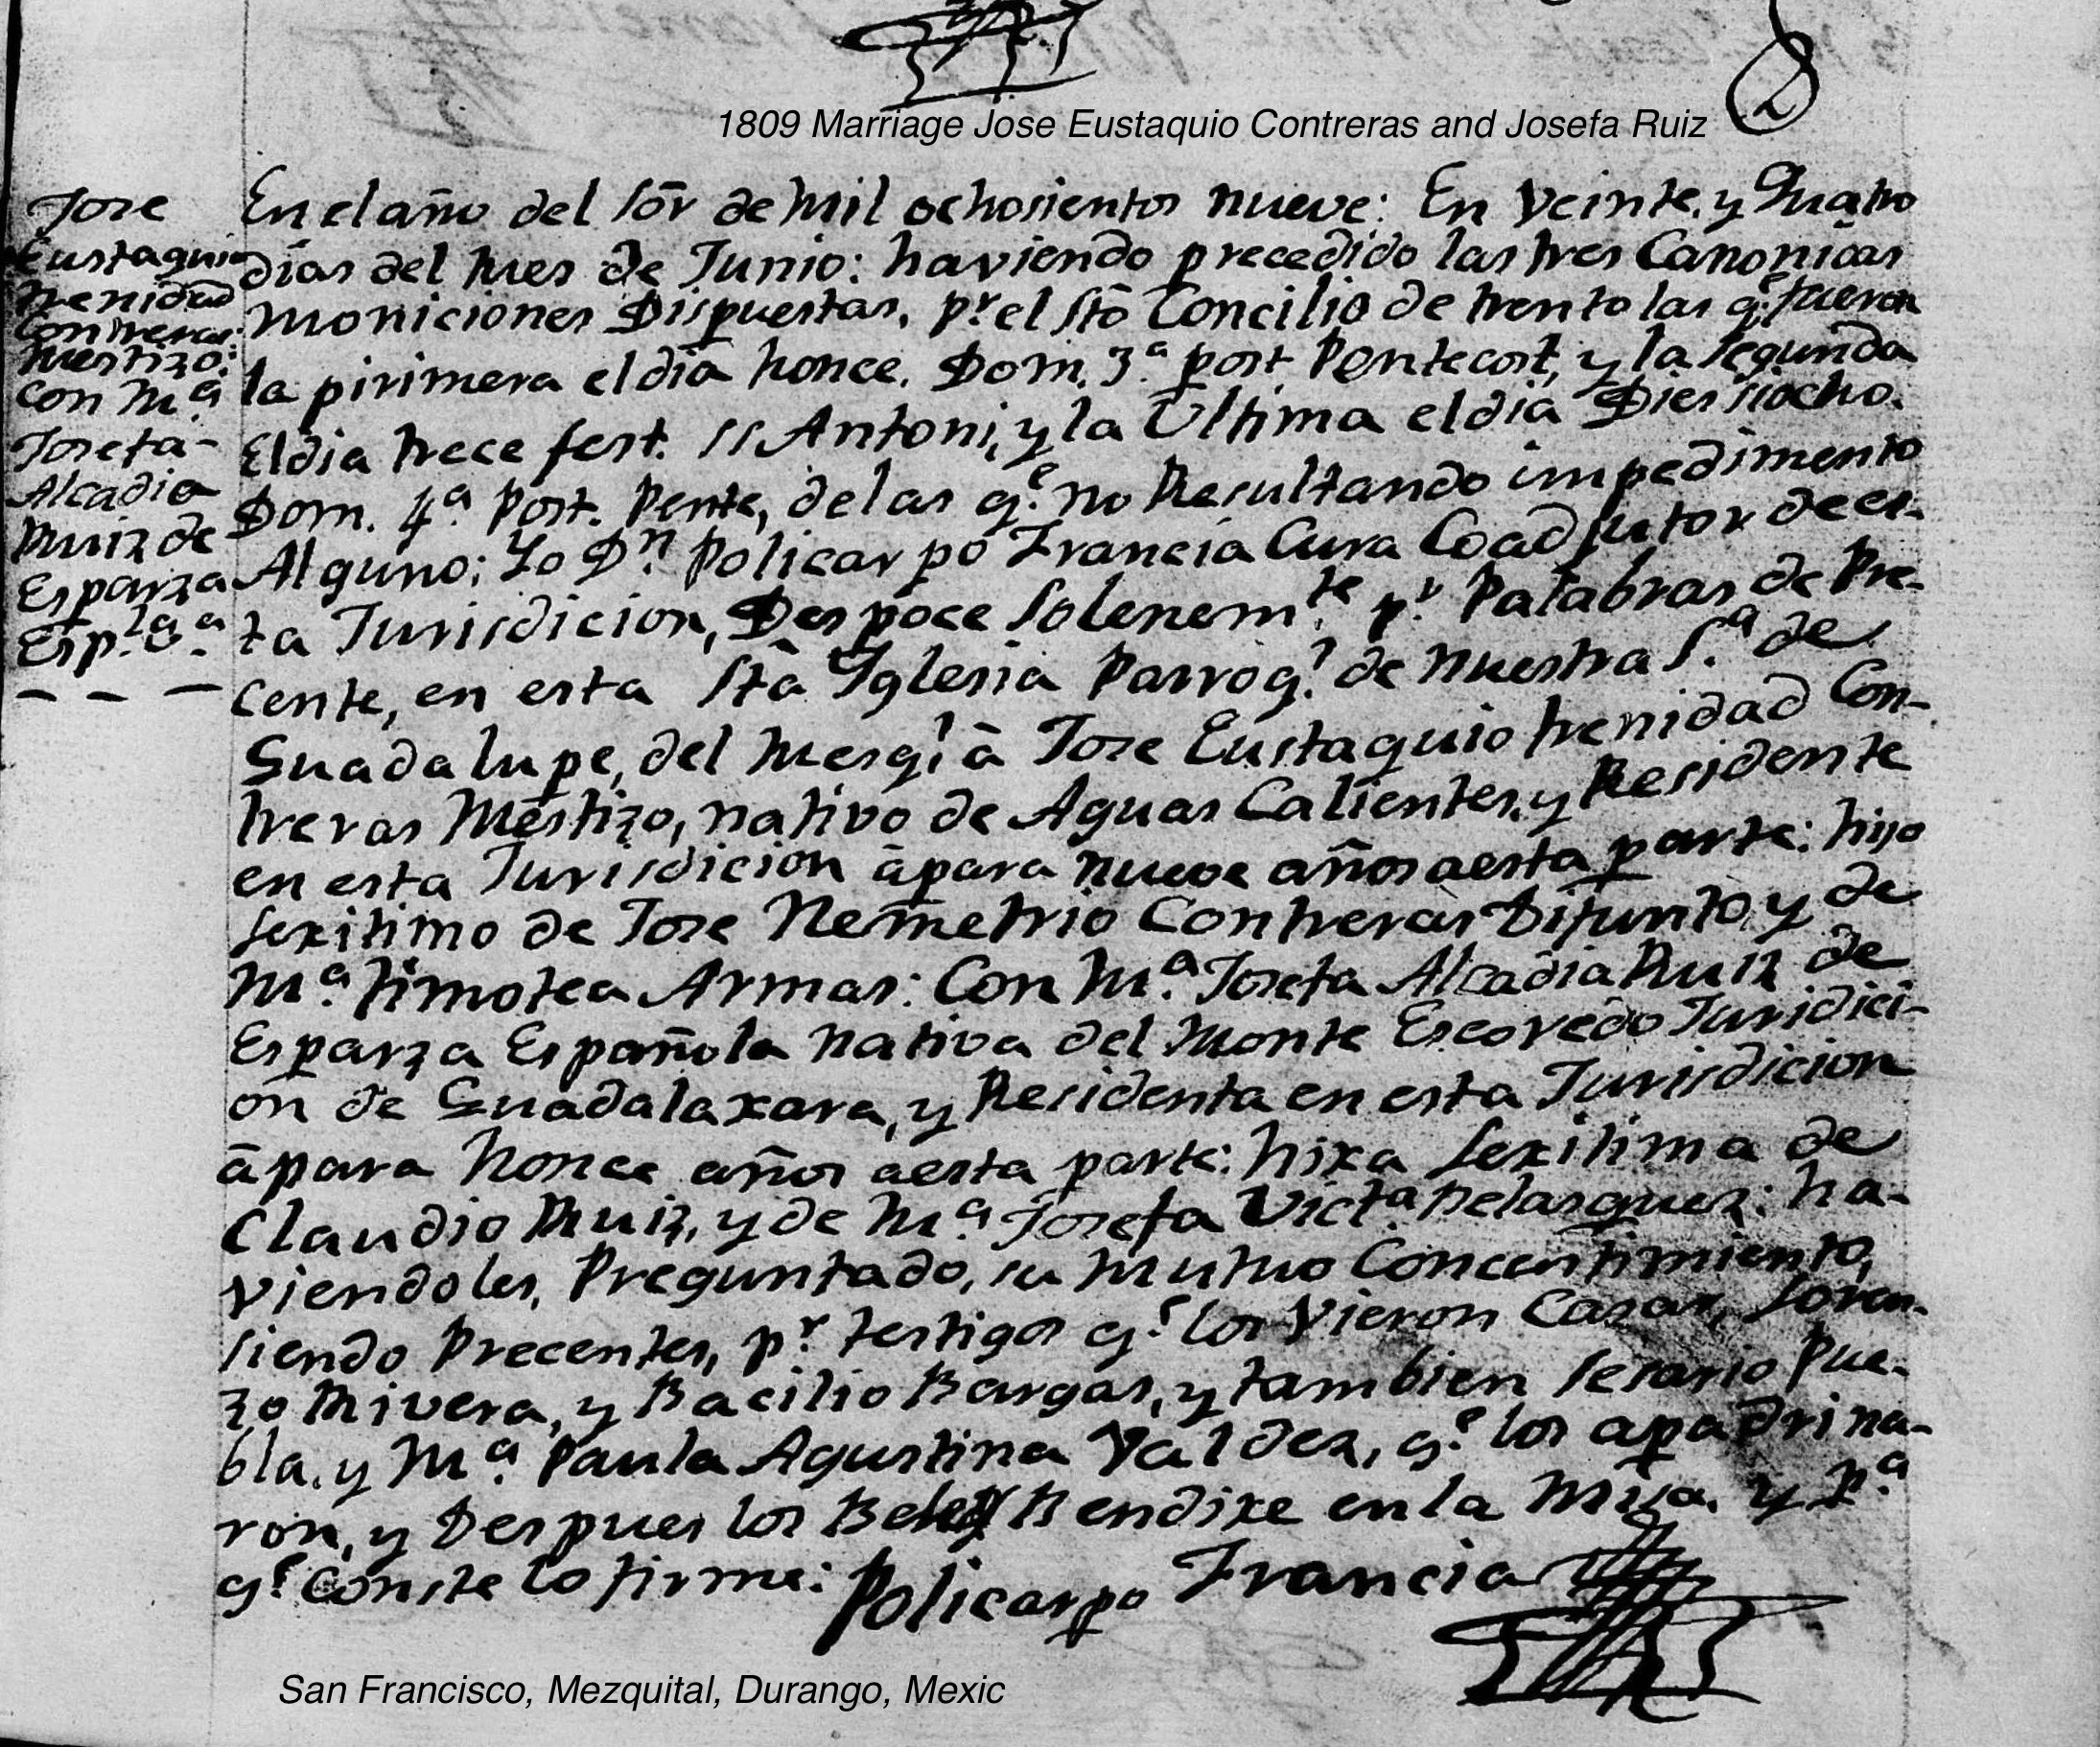 1809 Marriage Jose Eustaquio Contreras and Josefa Ruiz
Jose
Eustaquio
trenidad
Contreras
Mestizo:
Con Mª
Josefa
Alcadia
Ruiz de
Esparza
Esp.la
En el año del Sõr de Mil ochosientos nueve: En Veinte, y Quatro
dias del Mes de Junio: haviendo precedido las tres Canonicas
Moniciones Dispuestas, pr el Sto Concilio de trento las qe fueron
la pirimera el dia honce, Dom. 3ª post Pentecost, y la segunda
El dia trece fest. SS Antoni, y la Ultima el dia Diessiocho.
Dom. 4ª Post. Pente, de las qe no Resultando impedimento
Alguno; Yo Dn Policarpo Francia Cura Coadjutor de es-
ta Jurisdicion, Despoce Solenemte pr Palabras de Pre-
cente, en esta Sta Yglesia Parroql de Nuestra Sª de
Guadalupe, del Mesql â Jose Eustaquio trenidad Con-
treras Mestizo, nativo de Aguas Calientes, y Residente
en esta Jurisdicion âpara nueve años aesta parte: hijo
lexitimo de Jose Nemetrio Contreras Difunto, y de
Mª timotea Armas: Con Mª Josefa Alcadia Ruiz de
Esparza Española nativa del Monte Escovedo Juridici-
on de Guadalaxara, y Residenta en esta Jurisdicion
âpara honce años aesta parte: hixa lexitima de
Claudio Ruiz, y de Mª Josefa Victª Belasquez: ha-
viendoles, Preguntado, su Mutuo Concentimiento,
siendo Precentes, pr testigos qe los Vieron Casar, Loren-
zo Rivera, y Bacilio Bargas, y tambien Sesario Pue-
bla, y Mª Paula Agustina Valdez, qe los apadrina-
ron, y Despues los Bendixe en la Misa. y Pª
qe Conste lo firme: Policarpo Francia
San Francisco, Mezquital, Durango, Mexic